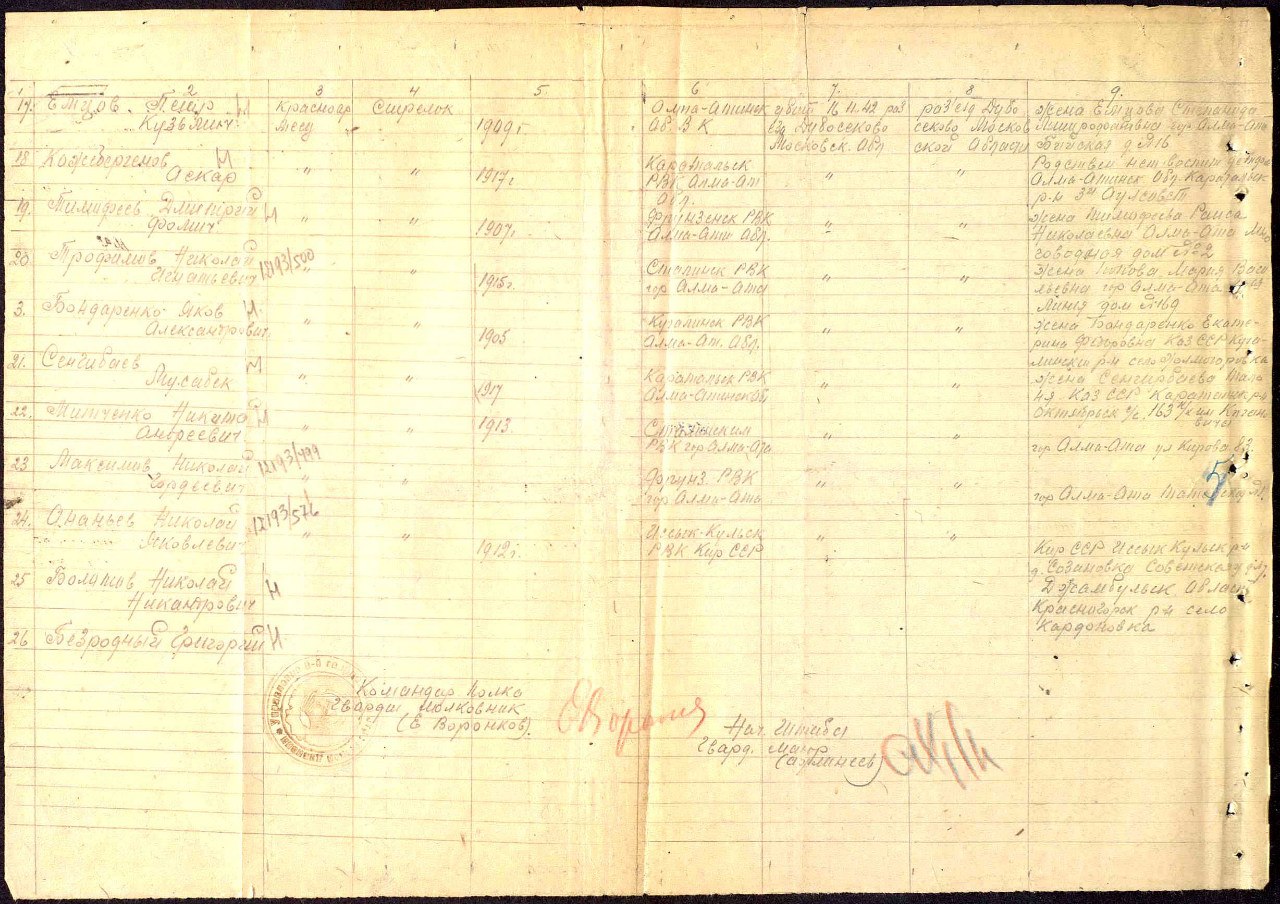 1 2 3 4 5 6 7. 8 9.
17. Емцов. Петр Н Красноар Стрелок Алма-Атинск убит 16.11.42 раз раз'езд Дубо жена Емцова Степанида
Кузьмич меец " 1909 г Об. В К езд Дубосеково секово Москов гор Алма-Ата
Московск. Обл ской Области Бийская д №16
18 Кожебергенов Н " " 1917 г Каратальск " " Родствен нет воспит
Аскар РВК Алма-Ат Алма-Атинск Обл. Каратальск
Обл. р-н 3й Аулсовет
19. Тимофеев Дмитрий Н " " 1907 г Фрунзенск РВК " " жена Тимофеева Раиса
Фомич Алма-Ата Обл. Николаевна Алма-Ата
дом №2
20. Трофимов Николай 12193/500 " " 1915 г Сталинск РВК " " жена Мария Васи
Игнатьевич гор Алма-Ата льевна гор Алма-Ата
Линия дом №
3. Бондаренко Яков Н. " " 1905 Кугалинск РВК " " жена Бондаренко Екате-
Александрович Алма-Ат. Обл. рина Федоровна Каз ССР Куга-
линский р-н село
21. Сенгибаев Н " " 1917 Каратальск РВК " " жена Сенгирбаева
Мусабек Алма-Атинской Каз ССР Каратальск р-н
Октябрьск с/с 163
22. Митченко Никита Н " " 1913 Сталинским " "
Андреевич РВК гор Алма-Ата гор Алма-Ата ул Кирова 83
23 Максимов Николай 12193/499 " " Фрунз. РВК " "
Гордеевич гор Алма-Ата гор Алма-Ата
5
24. Ананьев Николай 12193/526 " " 1912 г. Иссык-Кульск " "
Яковлевич РВК Кир ССР Кир ССР Иссык Кульск р-н
д. Созановка Советская
25 Болотов Николай Н Джамбульск Област
Никандрович Красногорск р-н село
Кардоновка
26 Безродный Григорий Н
Командир Полка
Гвардии Полковник
(Е Воронков).
Нач. Штаба
Гвард. Майор